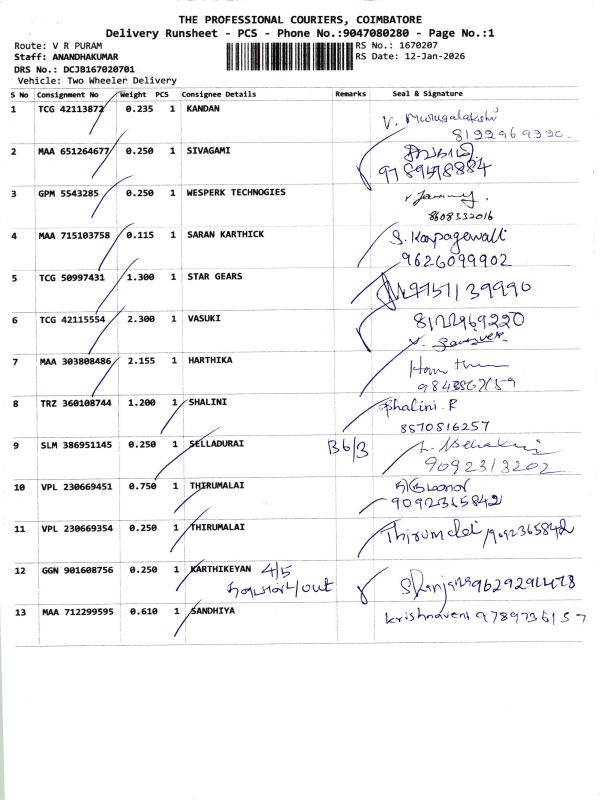 THE PROFESSIONAL COURIERS, COIMBATORE
Delivery Runsheet - PCS - Phone No.:9047080280 - Page No.:1
Route: V R PURAM RS No.: 1670207
Staff: ANANDHAKUMAR RS Date: 12-Jan-2026
DRS No.: DCJB167020701
Vehicle: Two Wheeler Delivery
S No Consignment No Weight PCS Consignee Details Remarks Seal & Signature
1 TCG 42113872 0.235 1 KANDAN
V. Murugalakshi
8122969220
2 MAA 651264677 0.250 1 SIVAGAMI
சிவகாமி
9789598884
3 GPM 5543285 0.250 1 WESPERK TECHNOGIES
8608332016
4 MAA 715103758 0.115 1 SARAN KARTHICK S. Karpagavalli
9626099902
5 TCG 50997431 1.300 1 STAR GEARS 9751139990
6 TCG 42115554 2.300 1 VASUKI 8122969220
7 MAA 303808486 2.155 1 HARTHIKA
8 TRZ 360108744 1.200 1 SHALINI Shalini. R
8570816257
9 SLM 386951145 0.250 1 SELLADURAI B6/3
9092313202
10 VPL 230669451 0.750 1 THIRUMALAI
9092365842
11 VPL 230669354 0.250 1 THIRUMALAI Thirumalai 9092365842
12 GGN 901608756 0.250 1 KARTHIKEYAN 4/5
/out
13 MAA 712299595 0.610 1 SANDHIYA krishnaveni 9789736157